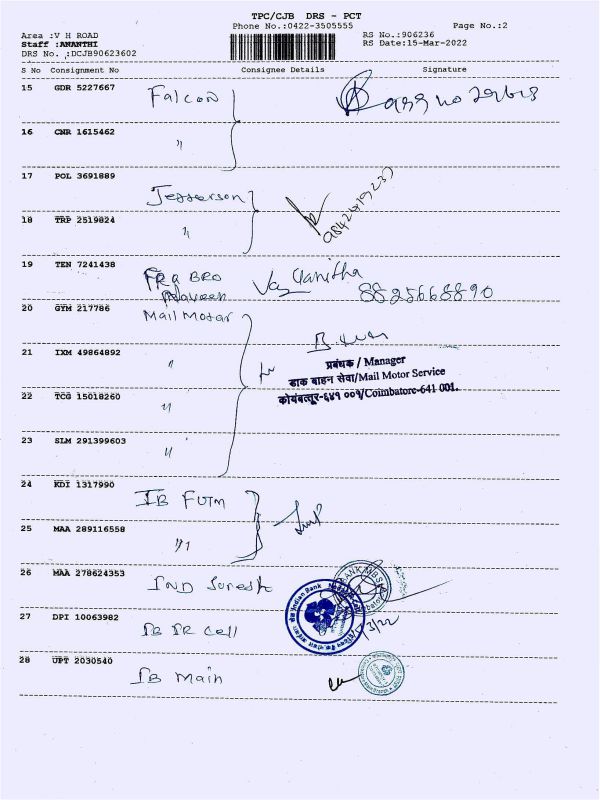 TPC/CJB DRS - PCT
Phone No.:0422-3505555
Page No.:2
Area :V H ROAD
Staff :ANANTHI
DRS No. :DCJB90623602
RS No.:906236
RS Date:15-Mar-2022
S No Consignment No Consignee Details Signature
15 GDR 5227667 Falcon
16 CNR 1615462 "
17 POL 3691889 Jefferson
18 TRP 2519824 "
19 TEN 7241438 FRA BRO
8825668890
20 GTM 217786 Mail Motar
21 IXM 49864892 "
प्रबंधक / Manager
डाक वाहन सेवा/Mail Motor Service
कोयंबत्तूर-६४१ ००१/Coimbatore-641 001.
22 TCG 15018260 "
23 SLM 291399603 "
24 KDI 1317990 IB
25 MAA 289116558 "
26 MAA 278624353 IND Suresh
27 DPI 10063982 IB Cell
28 UPT 2030540 IB Main